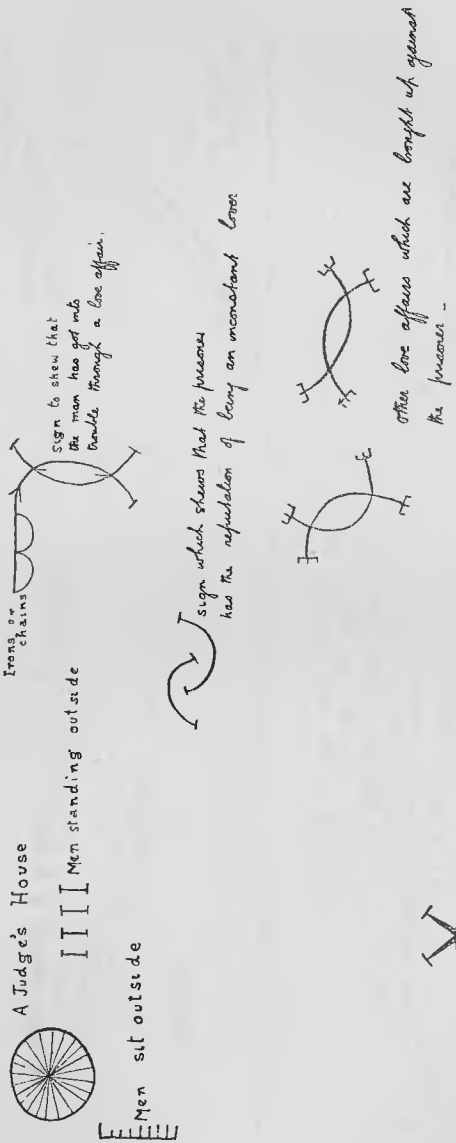 A Judge's House
Men standing outside
Men sit outside
Irons or
chains
sign to shew that
the man has got into
trouble through a love affair.
sign which shews that the prisoner
has the reputation of being an inconstant lover
other love affairs which are brought up against
the prisoner -